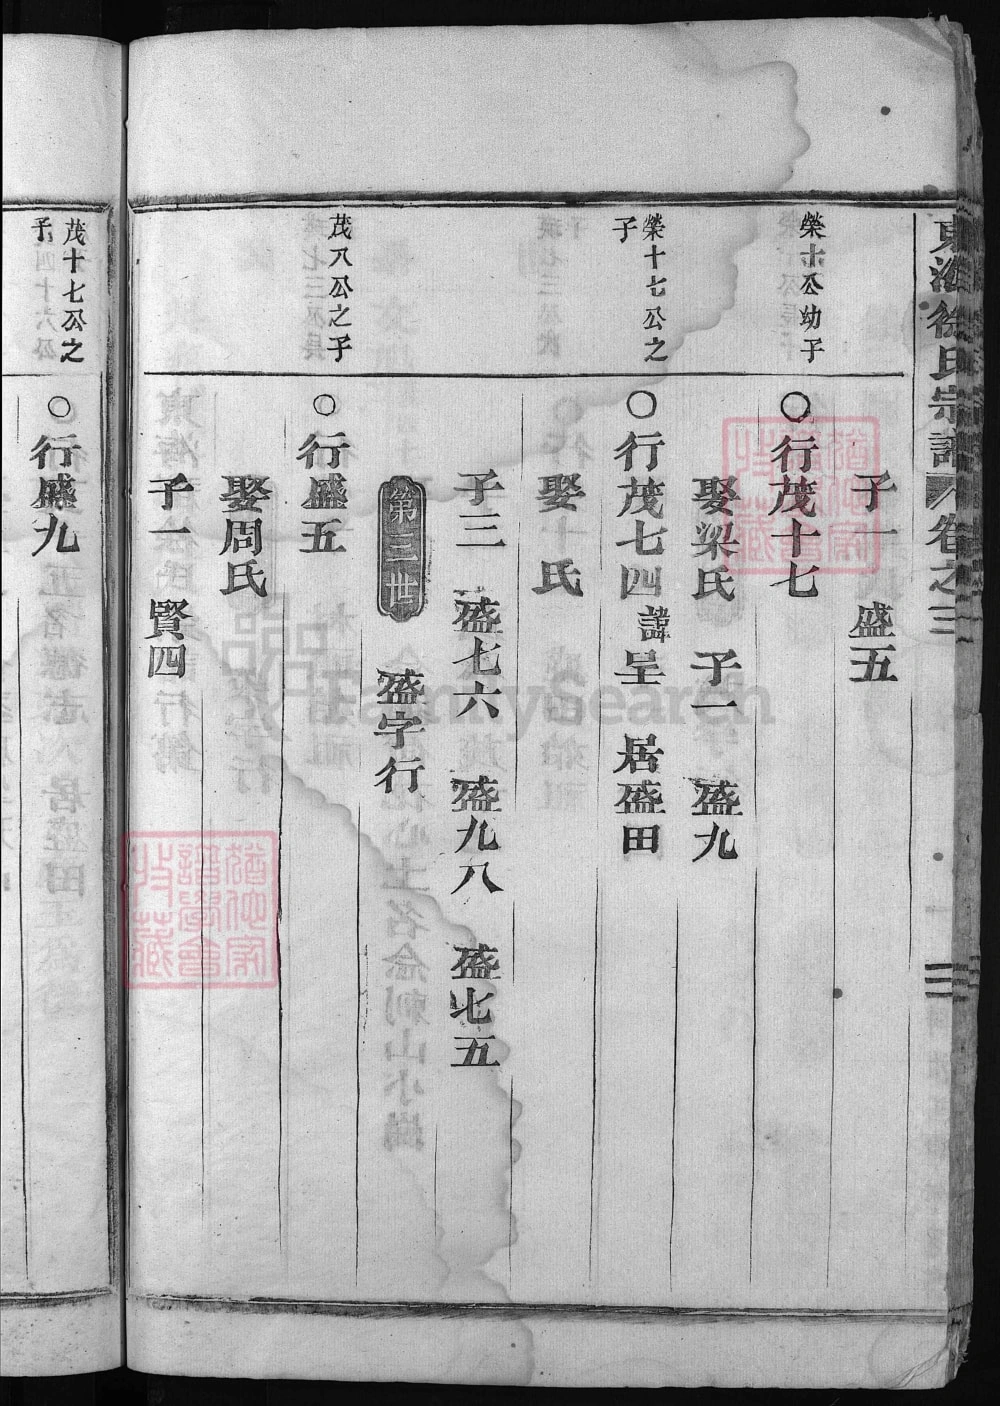 東海徐氏宗譜 卷之三
三
子一 盛五
榮十公幼子
○行茂十七
娶梁氏 子一 盛九
榮十七公之
子
○行茂七四 諱呈 居盛田
娶 氏
子三 盛七六 盛九八 盛七五
第三世 盛字行
茂八公之子
○行盛五
娶周氏
子一 賢四
茂十七公之
子
○行盛九
FamilySearch